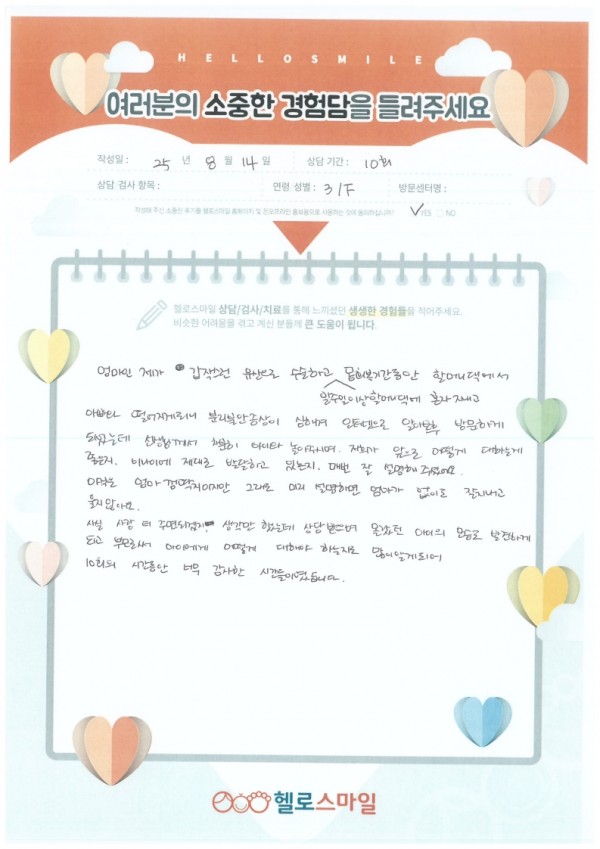 HELLOSMILE
여러분의 소중한 경험담을 들려주세요
작성일 : 25 년 8 월 14 일 상담 기간 : 10회
상담 검사 항목 : 연령 성별 : 3/F 방문센터명 :
작성해 주신 소중한 후기를 헬로스마일 홈페이지 및 온오프라인 홍보물으로 사용하는 것에 동의하십니까? ✓YES □ NO
헬로스마일 상담/검사/치료를 통해 느끼셨던 생생한 경험들을 적어주세요.
비슷한 어려움을 겪고 계신 분들께 큰 도움이 됩니다.
엄마인 제가 갑작스런 유방암으로 수술하고 몸회복기간동안 할머니댁에서
일주일이상할머니댁에 혼자 지내고
엄마와 떨어지게되니 분리불안증상이 심해져 오은영으로 알아본후 방문하게
되었는데 선생님께서 아이와 놀아주시며, 저희가 앞으로 어떻게 대하는게
좋은지, 이나이에 제대로 발달하고 있는지, 매번 잘 설명해 주셨어요.
아직도 엄마 껌딱지이지만 그래도 미리 설명하면 엄마가 없이도 잘지내고
울지않아요.
사실 사랑 더 주면되겠지 생각만 했는데 상담 받으며 몰랐던 아이의 모습도 발견하게
되고 부모로써 아이에게 어떻게 대해야 하는지도 많이알게되어
10회의 시간동안 너무 감사한 시간들이였습니다.
헬로스마일